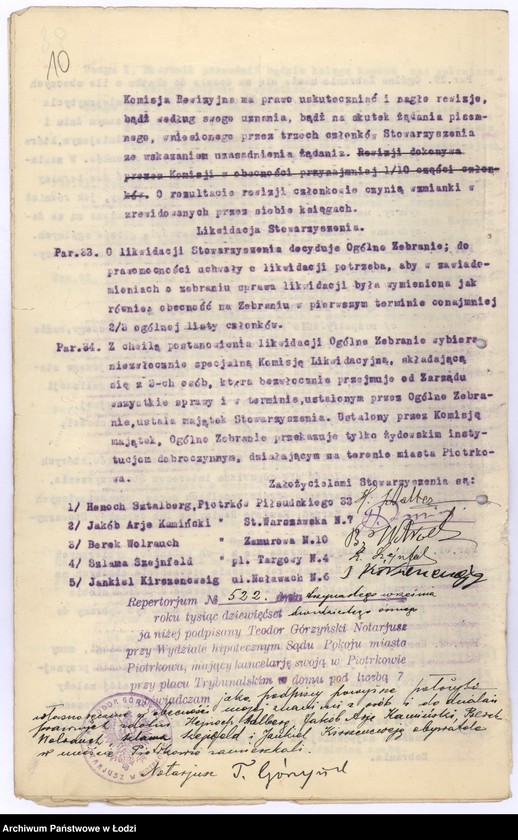 10
Komisja Rewizyjna ma prawo uskuteczniać i nagłe rewizje,
bądź według swego uznenia, bądź na skutek żądania pisem-
nego, wniesionego przez trzech członków Stowarzyszenia
ze wskazaniem uzasadnienia żądania. Rewizji dokonywa
przez Komisji w obecności przynajmniej 1/10 części człon-
ków. O rezultacie rewizji członkowie czynią wzmianki w
zrewidowanych przez siebie księgach.
Likwidacja Stowarzyszenia.
Par.33. O likwidacji Stowarzyszenia decyduje Ogólne Zebranie; do
prawomocności uchwały o likwidacji potrzeba, aby w zawiado-
mieniach o zebraniu sprawa likwidacji była wymieniona jak
również obecność na Zebraniu w pierwszym terminie conajmniej
2/3 ogólnej listy członków.
Par.34. Z chwilą postanowienia likwidacji Ogólne Zebranie wybiera
niezwłocznie specjalną Komisję Likwidacyjną, składającą
się z 3-ch osób, która bezwłocznie przejmuje od Zarządu
wszystkie sprawy i w terminie, ustalonym przez Ogólne Zebra-
nie, ustala majątek Stowarzyszenia. Ustalony przez Komisję
majątek, Ogólne Zebranie przekazuje tylko żydowskim insty-
tucjom dobroczynnym, działającym na terenie miasta Piotrko-
wa.
Założycielami Stowarzyszenia są:
1/ Henoch Sztalberg, Piotrków Piłsudskiego 33
2/ Jakób Arje Kamiński " St.Warszawska N.7
3/ Berek Wolrauch " Zamurowa N.10
4/ Szlama Szejnfeld " pl. Targowy N.4
5/ Jankiel Kirszencwejg ul.Nawłowach N.6
Repertorjum № 522. dnia września
roku tysiąc dziewięćset dwudziestego ósmego
ja niżej podpisany Teodor Górzyński Notarjusz
przy Wydziale hipotecznym Sądu Pokoju miasta
Piotrkowa, mający kancelarję swoją w Piotrkowie
przy placu Trybunalskim w domu pod liczbą 7
poświadczam jako podpisy powyższe położyli
własnoręcznie w obecności mojej znani mi z osób i do działań
prawnych zdolni Hejnoch Stalberg, Jakób Arje Kamiński, Berek
Wolrauch, Szlama Szejnfeld i Jankiel Kirszencwejg obywatele
w mieście Piotrkowie zamieszkali.
Notarjusz T. Górzyński
Archiwum Państwowe w Łodzi